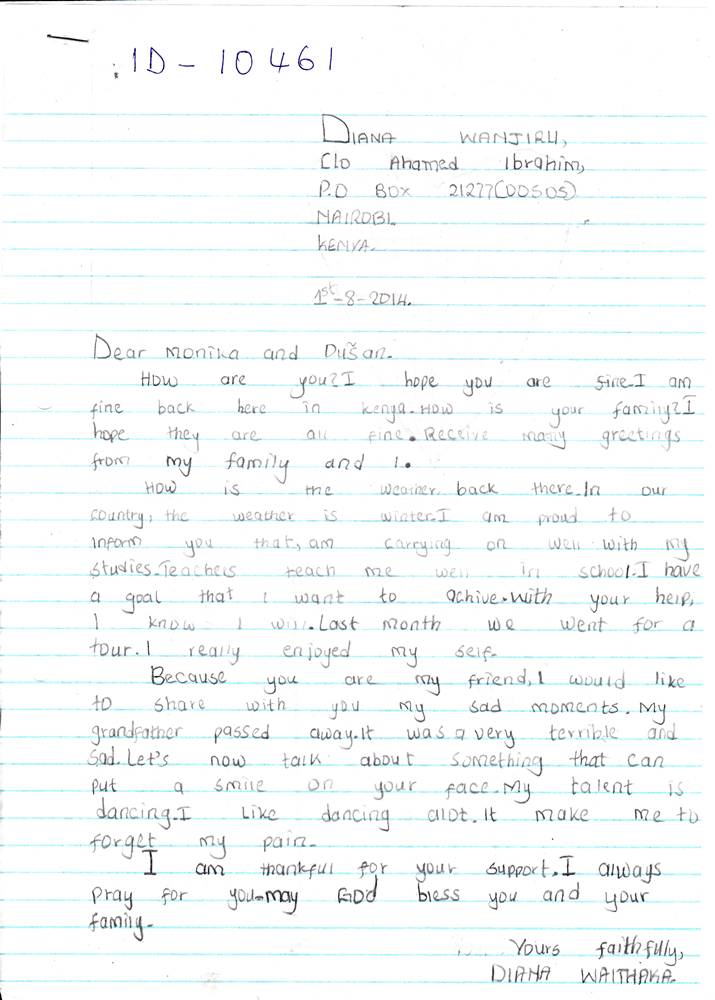 ID - 10461
DIANA WANJIRU,
C/o Ahamed Ibrahim,
P.O Box 21277(00505)
NAIROBI.
KENYA.
1st-8-2014.
Dear Monika and Dušan.
How are you?I hope you are fine.I am
fine back here in kenya.How is your family?I
hope they are all fine.Receive many greetings
from my family and I.
How is the weather back there.In our
country, the weather is winter.I am proud to
inform you that, am carrying on well with my
studies.Teachers teach me well in school.I have
a goal that I want to achive.With your help,
I know I will.Last month we went for a
tour.I really enjoyed my self.
Because you are my friend,I would like
to share with you my sad moments.My
grandfather passed away.It was a very terrible and
sad.Let's now talk about something that can
put a smile on your face.My talent is
dancing.I like dancing alot.It make me to
forget my pain.
I am thankful for your support.I always
pray for you.may GOD bless you and your
family.
Yours faithfully,
DIANA WAITHAKA.